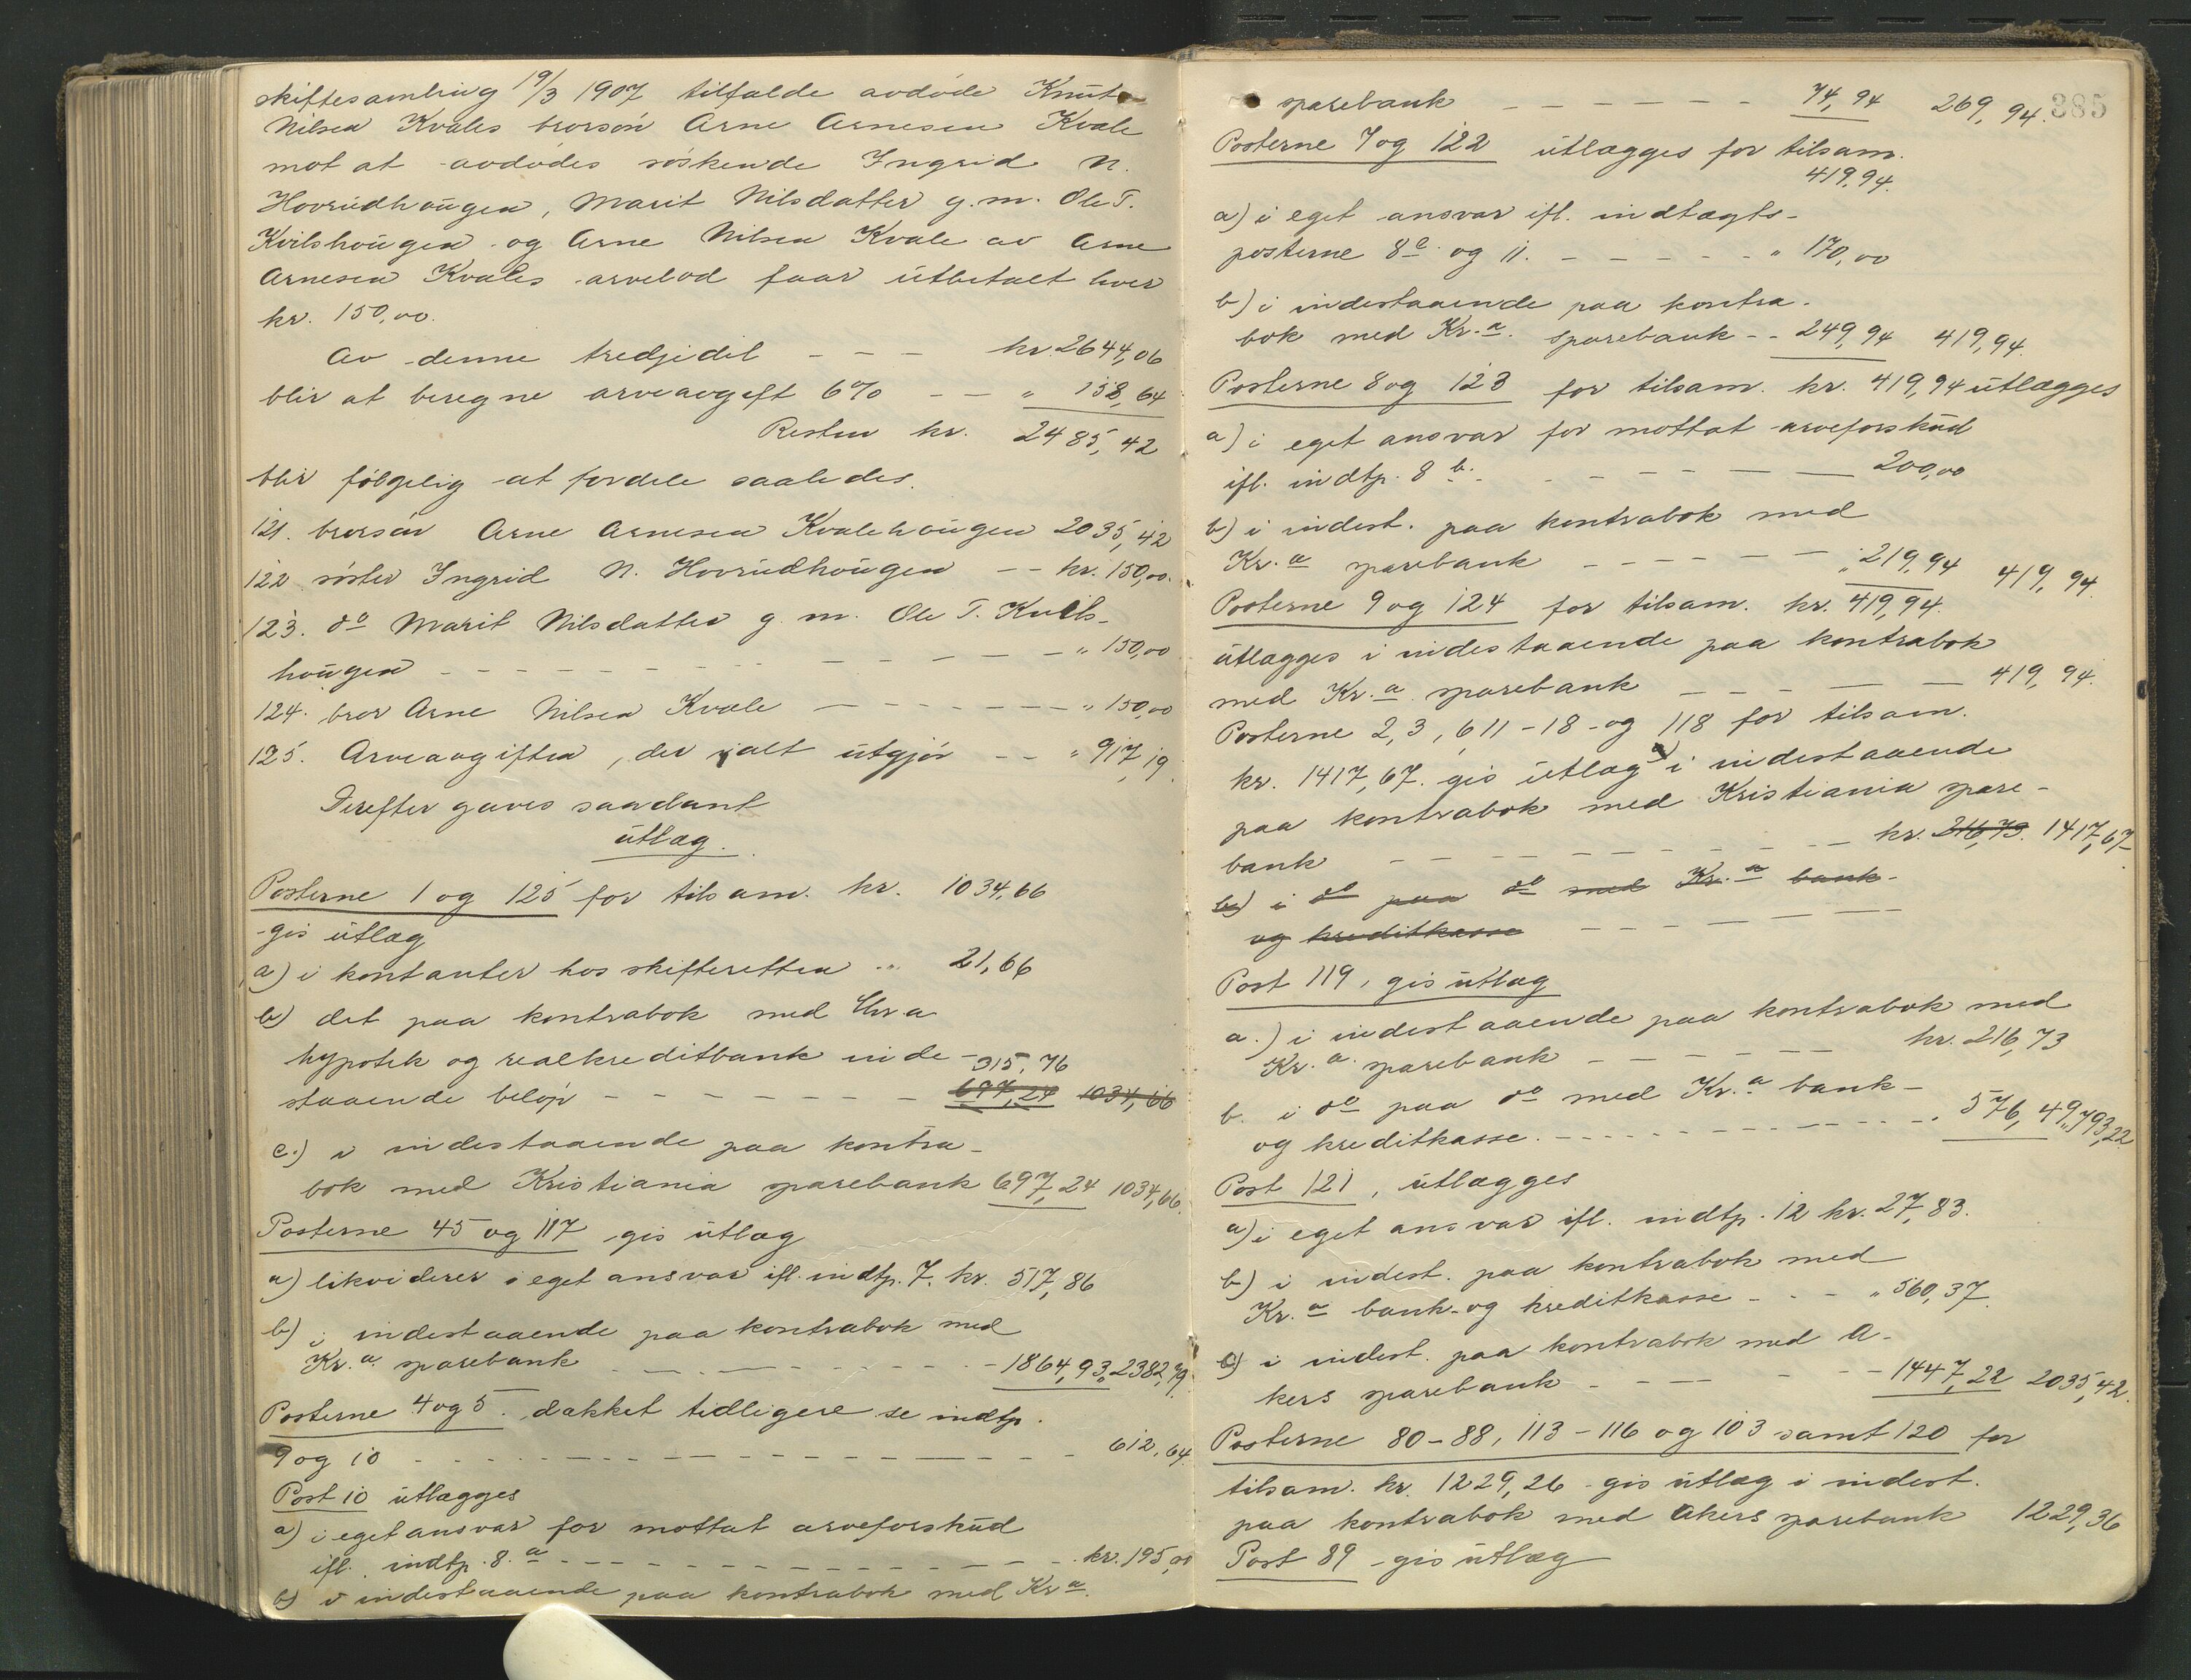 skiftesamling 19/3 1907 tilfaldt avdøde Knut
Nilsen Kvales brorsøn Arne Arnesen Kvale
mot at avdødes søskende Ingrid N.
Hovrudhaugen, Marit Nilsdatter g.m. Ole T.
Kvilshaugen og Arne Nilsen Kvale av Arne
Arnesen Kvales arvelod faar utbetalt hver
kr. 150,00.
Av denne tredjedel - - - kr. 2644,06
blir at beregne arveavgift 6% - - " 158,64
Resten kr. 2485,42
blir følgelig at fordele saaledes.
121. brorsøn Arne Arnesen Kvalehaugen 2035,42
122 søster Ingrid N. Hovrudhaugen - - kr. 150,00.
123. do Marit Nilsdatter g. m. Ole T. Kvils-
haugen - - - - - - - - - " 150,00
124. bror Arne Nilsen Kvale - - - - - - " 150,00
125. Arveavgiften, der ialt utgjør - - " 917,19.
Derefter gaves saadant
utlæg.
Posterne 1 og 125 for tilsam. kr. 1034,66
gis utlæg
a) i kontanter hos skifteretten .. 21,66
b) det paa kontrabok med Chra
hypotek og realkreditbank inde- 315,76
staaende beløp - - - - - - - 697,24 1034,66
c.) i indestaaende paa kontra-
bok med Kristiania sparebank 697,24 1034,66.
Posterne 45 og 117 gis utlæg
a) likviderer i eget ansvar ifl. indtp. 7. kr. 517,86
b) i indestaaende paa kontrabok med
Kr.a sparebank - - - - - - - 1864,93 " 2382,79.
Posterne 4 og 5. dækket tidligere se indtp.
9 og 10 - - - - - - - - - - - 612,64.
Post 10 utlægges
a) i eget ansvar for mottat arveforskud
ifl. indtp. 8.a - - - - - - - - - kr. 195,00
b) i indestaaende paa kontrabok med Kr.a
385
sparebank - - - - - - 74,94 269,94.
Posterne 7 og 122 utlægges for tilsam.
419,94.
a) i eget ansvar ifl. indtægts-
posterne 8c og 11. - - - - - " 170,00
b) i indestaaende paa kontra-
bok med Kr.a. sparebank - - 249,94 419,94.
Posterne 8 og 123 for tilsam. kr. 419,94 utlægges
a) i eget ansvar for mottat arveforskud
ifl. indtp. 8 b. - - - - - 200,00
b) i indest. paa kontrabok med
Kr.a sparebank - - - - - " 219,94 419,94.
Posterne 9 og 124 for tilsam. kr. 419,94.
utlægges i indestaaende paa kontrabok
med Kr.a sparebank - - - - - 419,94.
Posterne 2, 3, 6, 11 - 18 - og 118 for tilsam.
kr. 1417,67. gis utlæg a) i indestaaende
paa kontrabok med Kristiania spare-
bank - - - - - - - - kr. 216,73. 1417,67
b) i do paa do med Kr.a bank-
og kreditkasse - - - - -
Post 119, gis utlæg
a.) i indestaaende paa kontrabok med
Kr.a. sparebank - - - - - kr. 216,73
b. i do paa do med Kr.a bank-
og kreditkasse. - - - - - - - - " 576,49 " 793,22
Post 121, utlægges
a) i eget ansvar ifl. indtp. 12 kr. 27,83.
b) i indest. paa kontrabok med
Kr.a bank- og kreditkasse - - - " 560,37.
c) i indest. paa kontrabok med A-
kers sparebank - - - - - 1447,22 2035,42.
Posterne 80-88, 113-116 og 103 samt 120 for
tilsam. kr. 1229,26 gis utlæg i indest.
paa kontrabok med Akers sparebank 1229,36
Post 89 gis utlæg